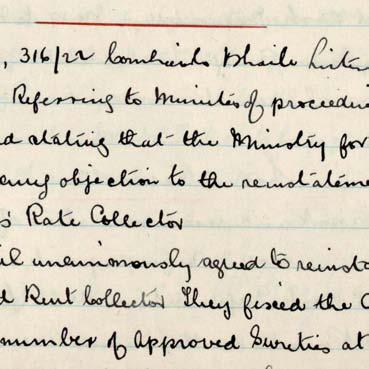 , 316/22 Comhairle Dhaile
Referring to Minutes of proceedi
d stating that the Ministry for
any objection to the reinstateme
s Rate Collector
il unanimously agreed to reinsta
d Rent Collector They fixed the
number of Approved Sureties at